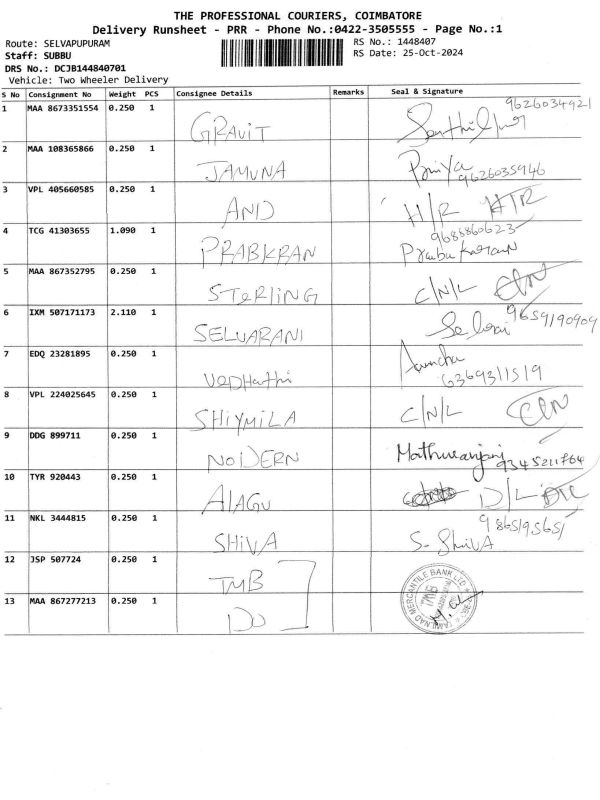 THE PROFESSIONAL COURIERS, COIMBATORE
Delivery Runsheet - PRR - Phone No.:0422-3505555 - Page No.:1
Route: SELVAPUPURAM RS No.: 1448407
Staff: SUBBU RS Date: 25-Oct-2024
DRS No.: DCJB144840701
Vehicle: Two Wheeler Delivery
S No Consignment No Weight PCS Consignee Details Remarks Seal & Signature
1 MAA 8673351554 0.250 1 GRAVIT 9626034921
2 MAA 108365866 0.250 1 JAMUNA Priya 9626035946
3 VPL 405660585 0.250 1 AND H/R HTR
4 TCG 41303655 1.090 1 PRABKRAN 9688860623 Prabukaran
5 MAA 867352795 0.250 1 STERLING C/N/L
6 IXM 507171173 2.110 1 SELVARANI Selvai 9659190909
7 EDQ 23281895 0.250 1 VEDHathi 6369311519
8 VPL 224025645 0.250 1 SHIYMILA C/N/L
9 DDG 899711 0.250 1 NODERN 9345211764
10 TYR 920443 0.250 1 AlAGU D/L
11 NKL 3444815 0.250 1 SHIVA S. ShivA
12 JSP 507724 0.250 1 TMB
13 MAA 867277213 0.250 1 DO
TAMILNAD MERCANTILE BANK LTD